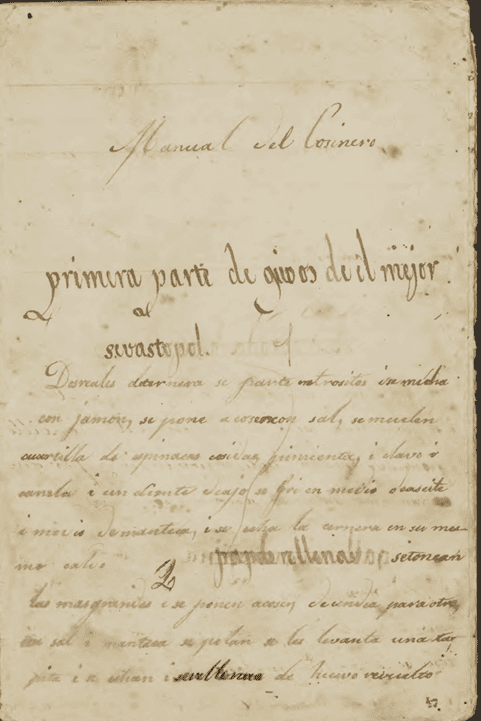 Manual del Cosinero
primera parte de guisos de el mejor
al
sevastopol.
Dosreales deternera se parte entrositos i se micha
con jamon, se pone a coser con sal, se muelen
cuartilla de espinacas cosidas pimienta, i clavo i
canela i un diente deajo, se frie en medio deaseite
i medio demanteca, i se echa la ternera en su mes-
mo caldo
2 papas rellenas setoncan
las masgrandes i se ponen acoser, decendia, para otro,
con sal i manteca se pelan se les levanta una tap
pita i se
i se rellenan de huevo revuelto